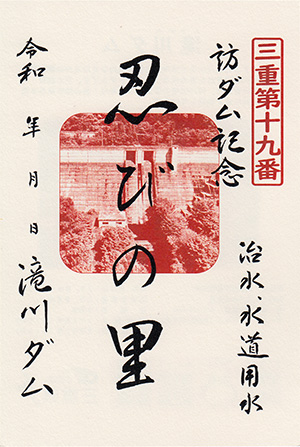 三重第十九番
訪ダム記念
治水、水道用水
忍びの里
令和 年 月 日
滝川ダム